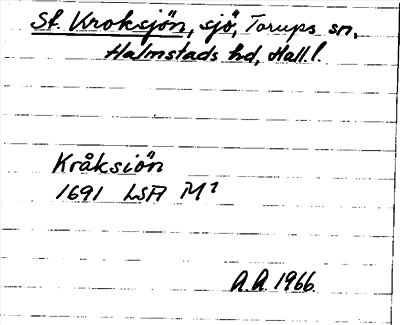 St. Kroksjön, sjö, Torups sn,
Halmstads hd, Hall. l.
Kråksiön
1691 LSA M²
A.A. 1966.